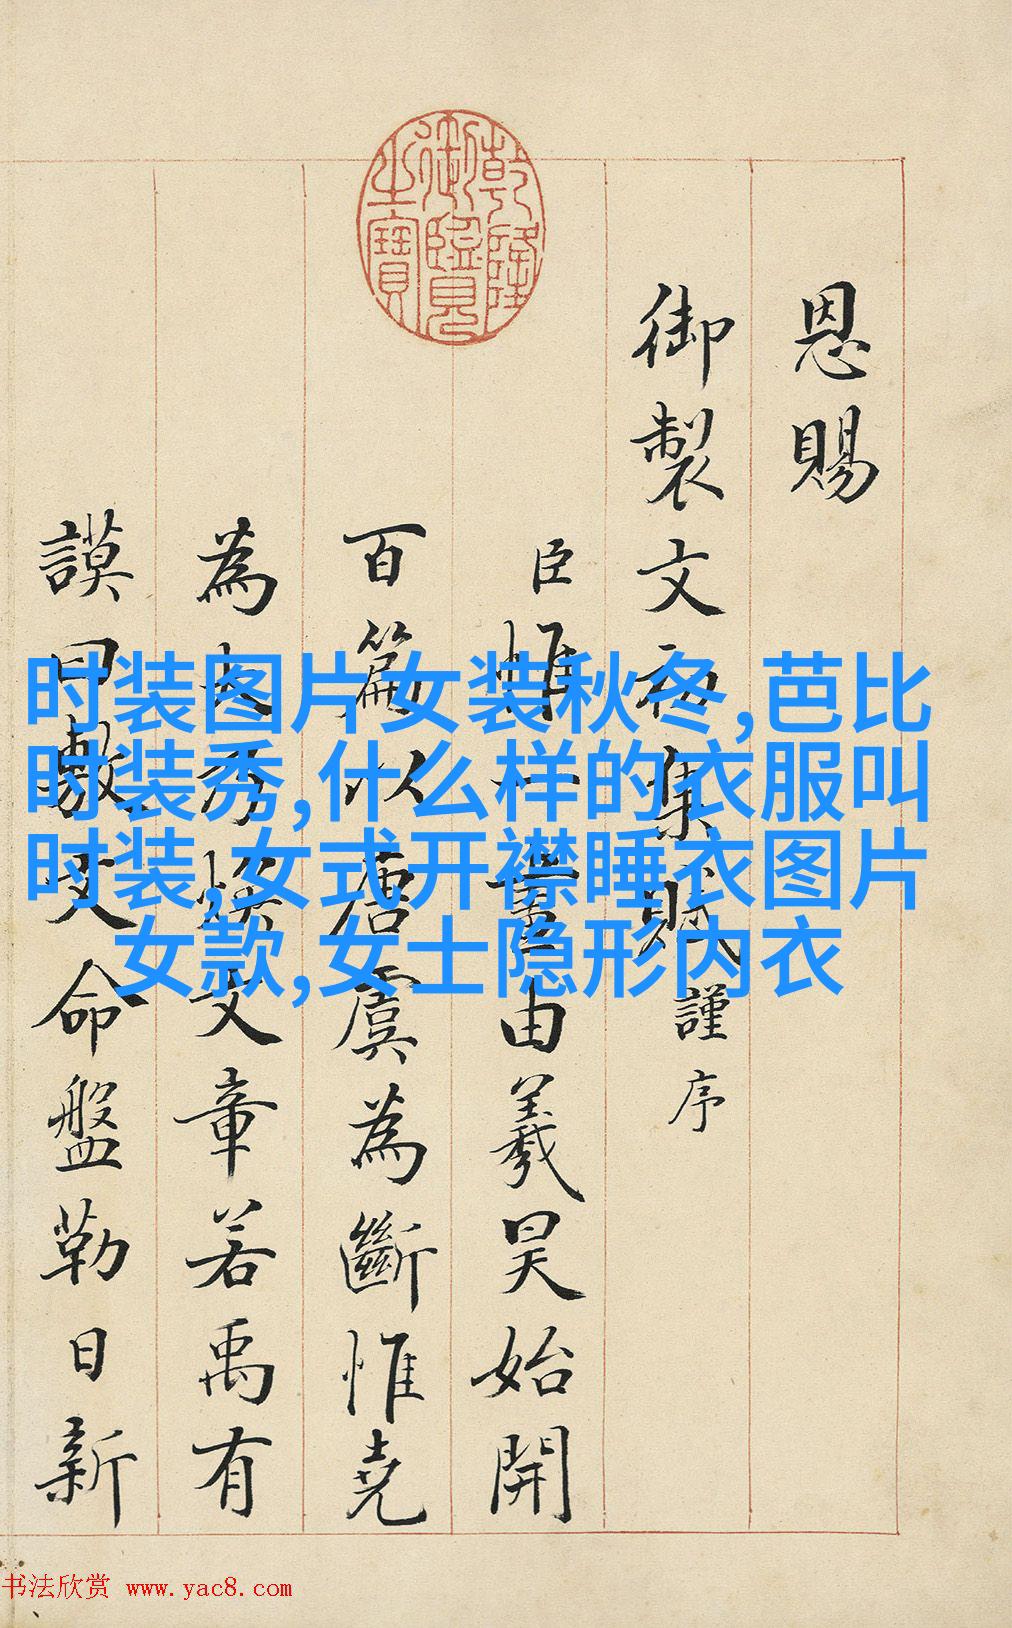 乾隆御覽之寶
恩賜
御製文初集賦謹序
臣惟一畫由羲昊始開
百篇以唐虞為斷惟堯
為大乃煥文章若禹有
謨曰敷文命盤勒日新
时装图片女装秋冬,芭比
时装秀,什么样的衣服叫
时装,女式开襟睡衣图片
女款,女士隐形内衣
书法欣赏 www.yac8.com